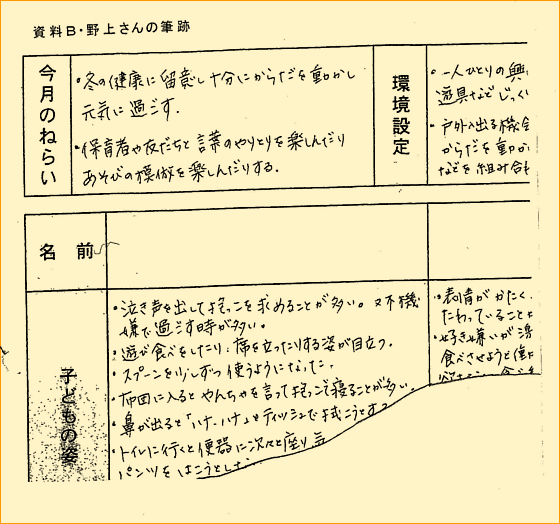 資料B・野上さんの筆跡
今月のねらい
・冬の健康に留意し十分にからだを動かし
元気に過ごす.
・保育者や友だちと言葉のやりとりを楽しんだり
あそびの模倣を楽しんだりする.
環境設定
・一人ひとりの興
遊具など じっくり
・戸外へ出る機会
からだを動か
などを組み合わ
名 前
子どもの姿
・泣き声を出して抱っこを求めることが多い。又不機
嫌で過ごす時が多い。
・遊び食べをしたり、席を立ったりする姿が目立つ.
・スプーンを少しずつ使うようになった.
・布団に入るとやんちゃを言って抱っこで寝ることが多い.
・鼻が出ると「ハナ、ハナ」とティッシュで拭こうとする
・トイレに行くと便器に次々と座り
パンツをはこうとし
・表情がかたく、
たわっていること
・好き嫌いが
食べさせようと